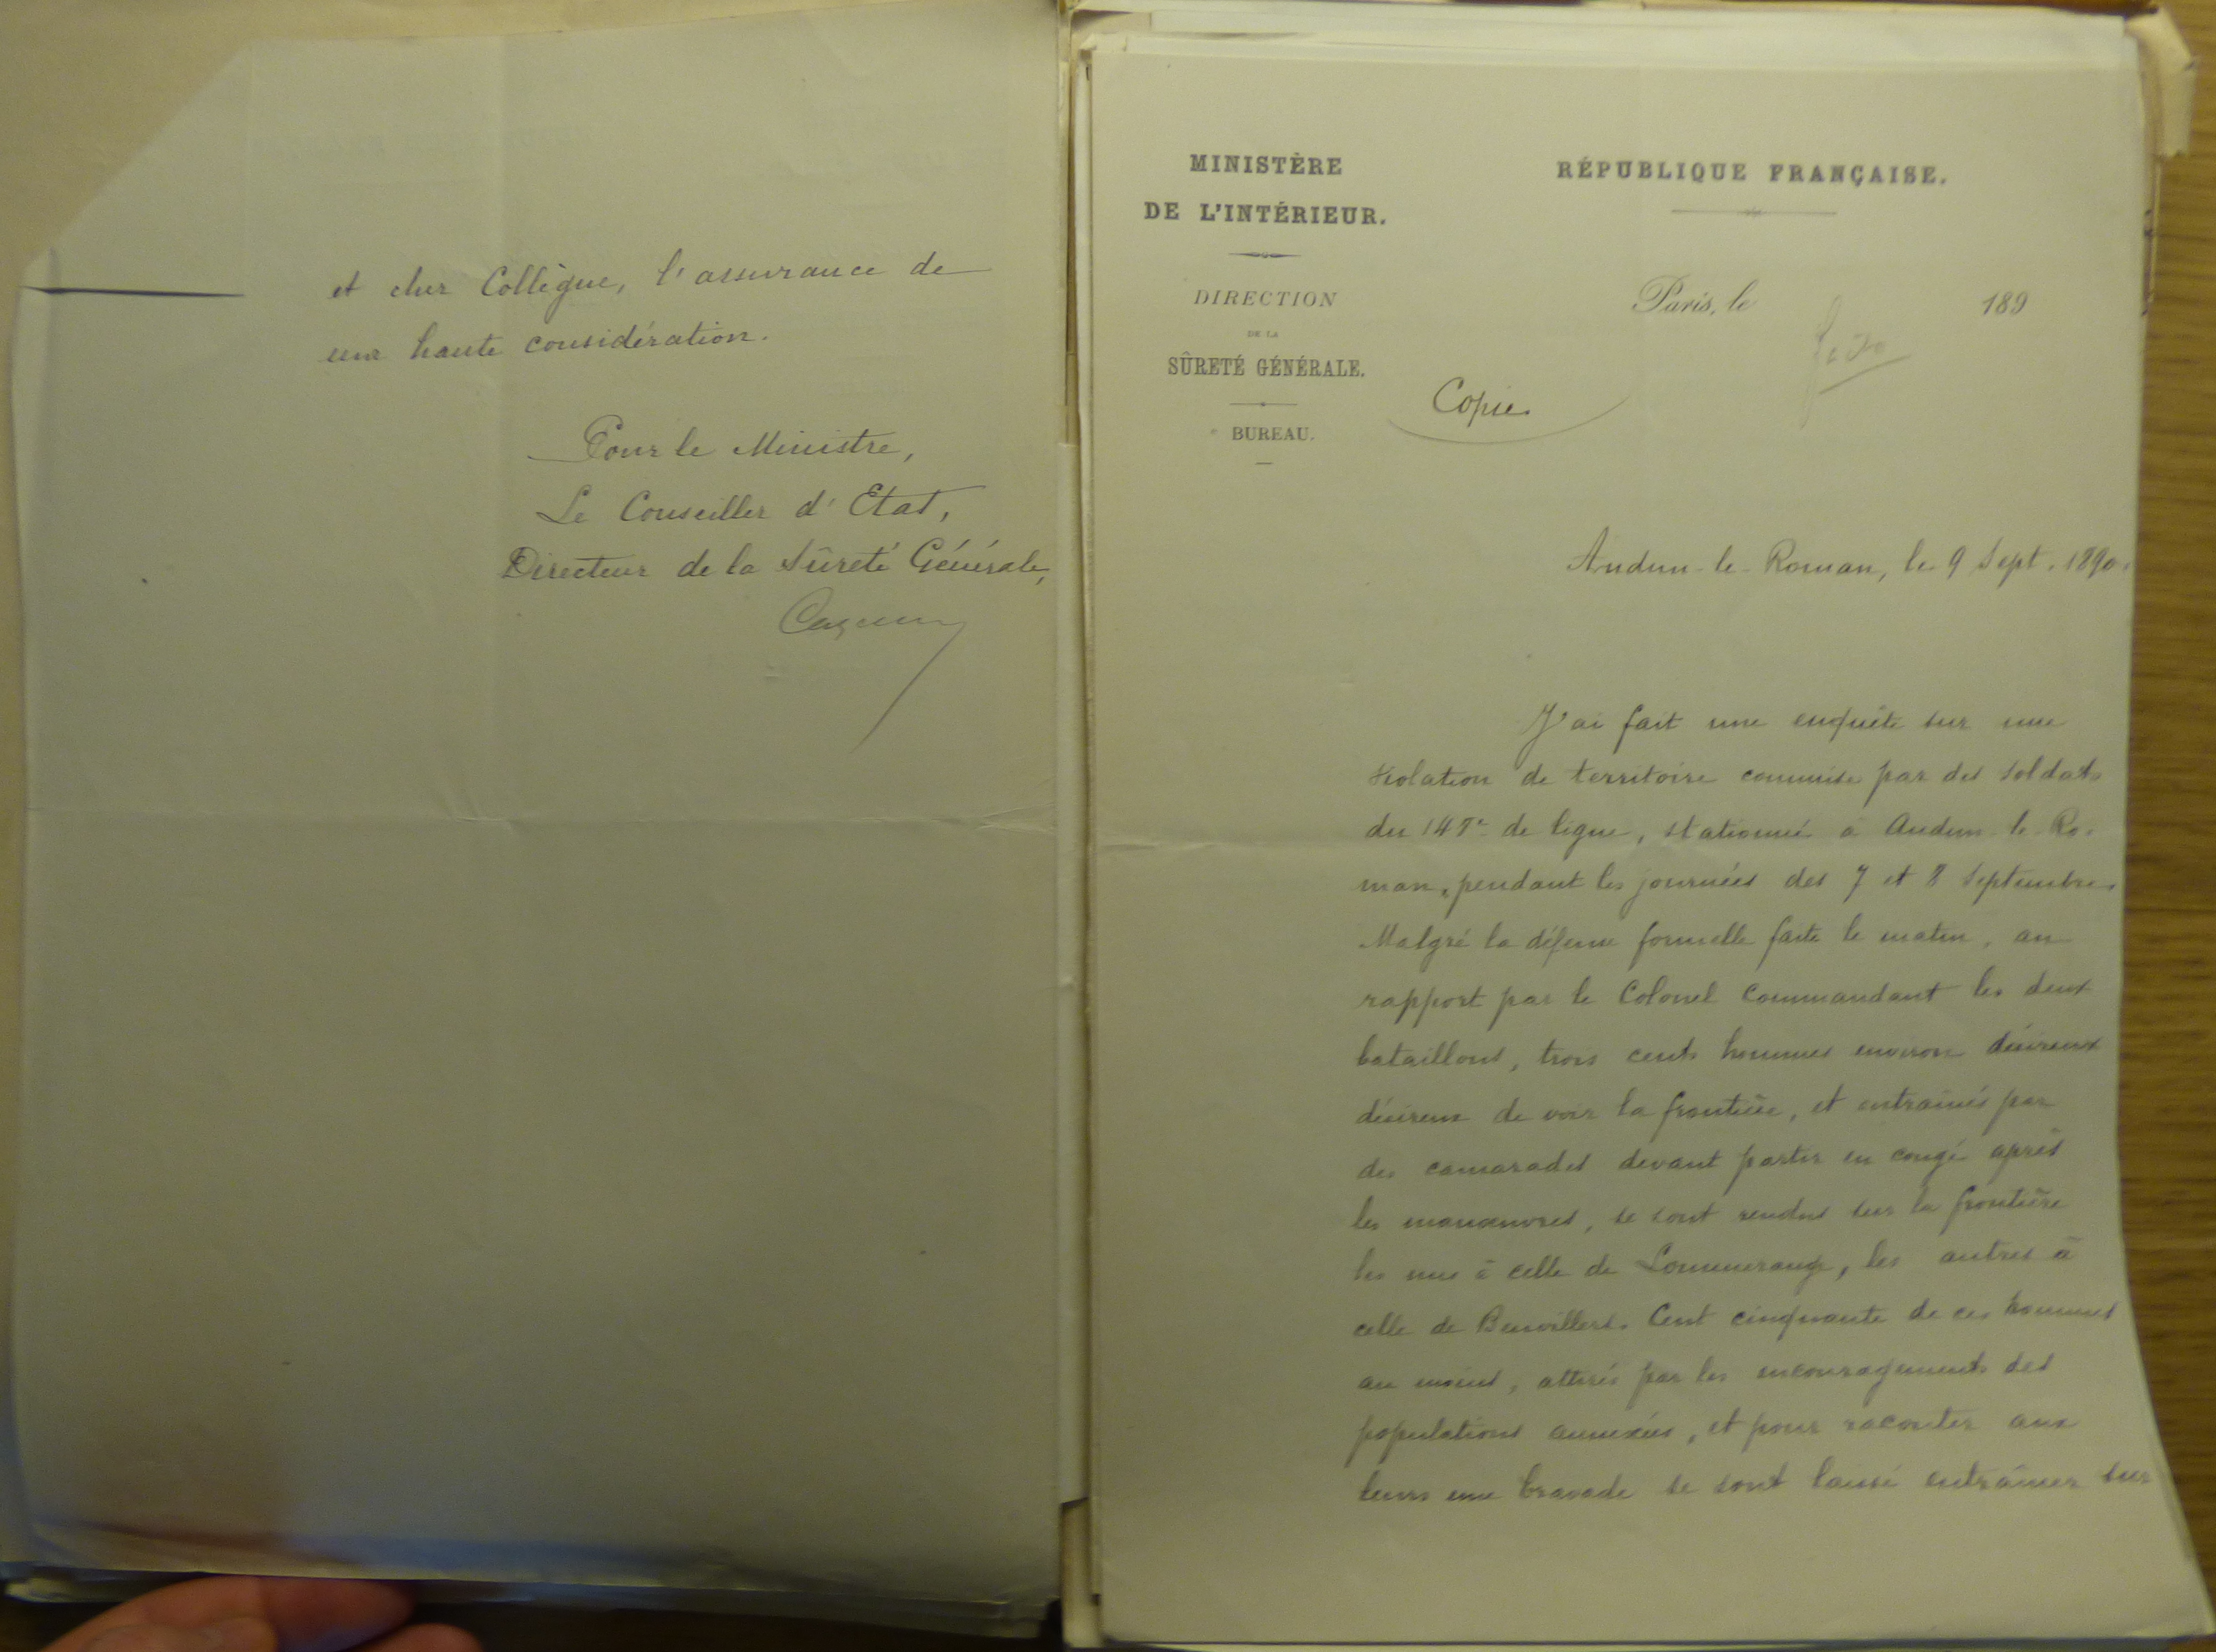 et cher Collègue, l'assurance de
ma haute considération.
Pour le Ministre,
Le Conseiller d'Etat,
Directeur de la Sûreté Générale,
MINISTÈRE
DE L'INTÉRIEUR.
DIRECTION
DE LA
SÛRETÉ GÉNÉRALE.
BUREAU.
RÉPUBLIQUE FRANÇAISE.
Paris, le 189
Copie
Audun-le-Roman, le 9 Sept. 1890.
J'ai fait une enquête sur une
violation de territoire commise par des soldats
du 147e de ligne, stationné à Audun-le-Ro-
man, pendant les journées des 7 et 8 Septembre.
Malgré la défense formelle faite le matin, au
rapport par le Colonel commandant les deux
bataillons, trois cents hommes environ désireux
désireux de voir la frontière, et entraînés par
des camarades devant partir en congé après
les manœuvres, se sont rendus sur la frontière
les uns à celle de Lommerange, les autres à
celle de Beuvillers. Cent cinquante de ces hommes
au moins, attirés par les encouragements des
populations annexées, et pour raconter aux
leurs une bravade se sont laissé entraîner sur